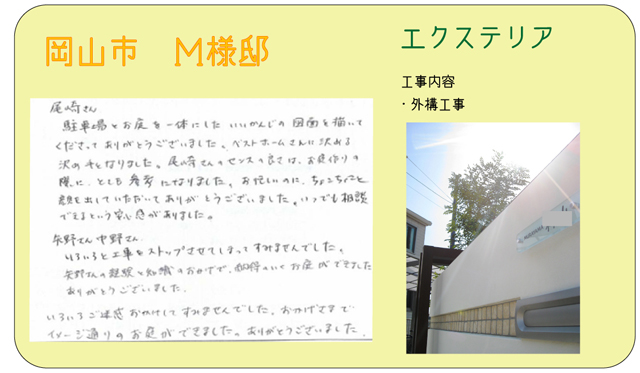 岡山市　M様邸
エクステリア
工事内容
・外構工事
尾崎さん
駐車場とお庭を一体にした いいかんじの 図面を描いて
くださって ありがとうございました。ベストホームさんに決める
決め手となりました。尾崎さんのセンスの良さは、お庭作りの
際に、とても 参考になりました。お忙しいのに、ちょこちょこと
顔を出していただいて ありがとうございました。いつでも相談
できるという安心感がありました。
矢野さん 中野さん
いろいろと工事をストップさせてしまって すみませんでした。
矢野さんの経験と知識のおかげで、納得のいく お庭ができました
ありがとうございました。
いろいろご迷惑おかけして すみませんでした。おかげさまで
イメージ通りのお庭ができました。ありがとうございました。